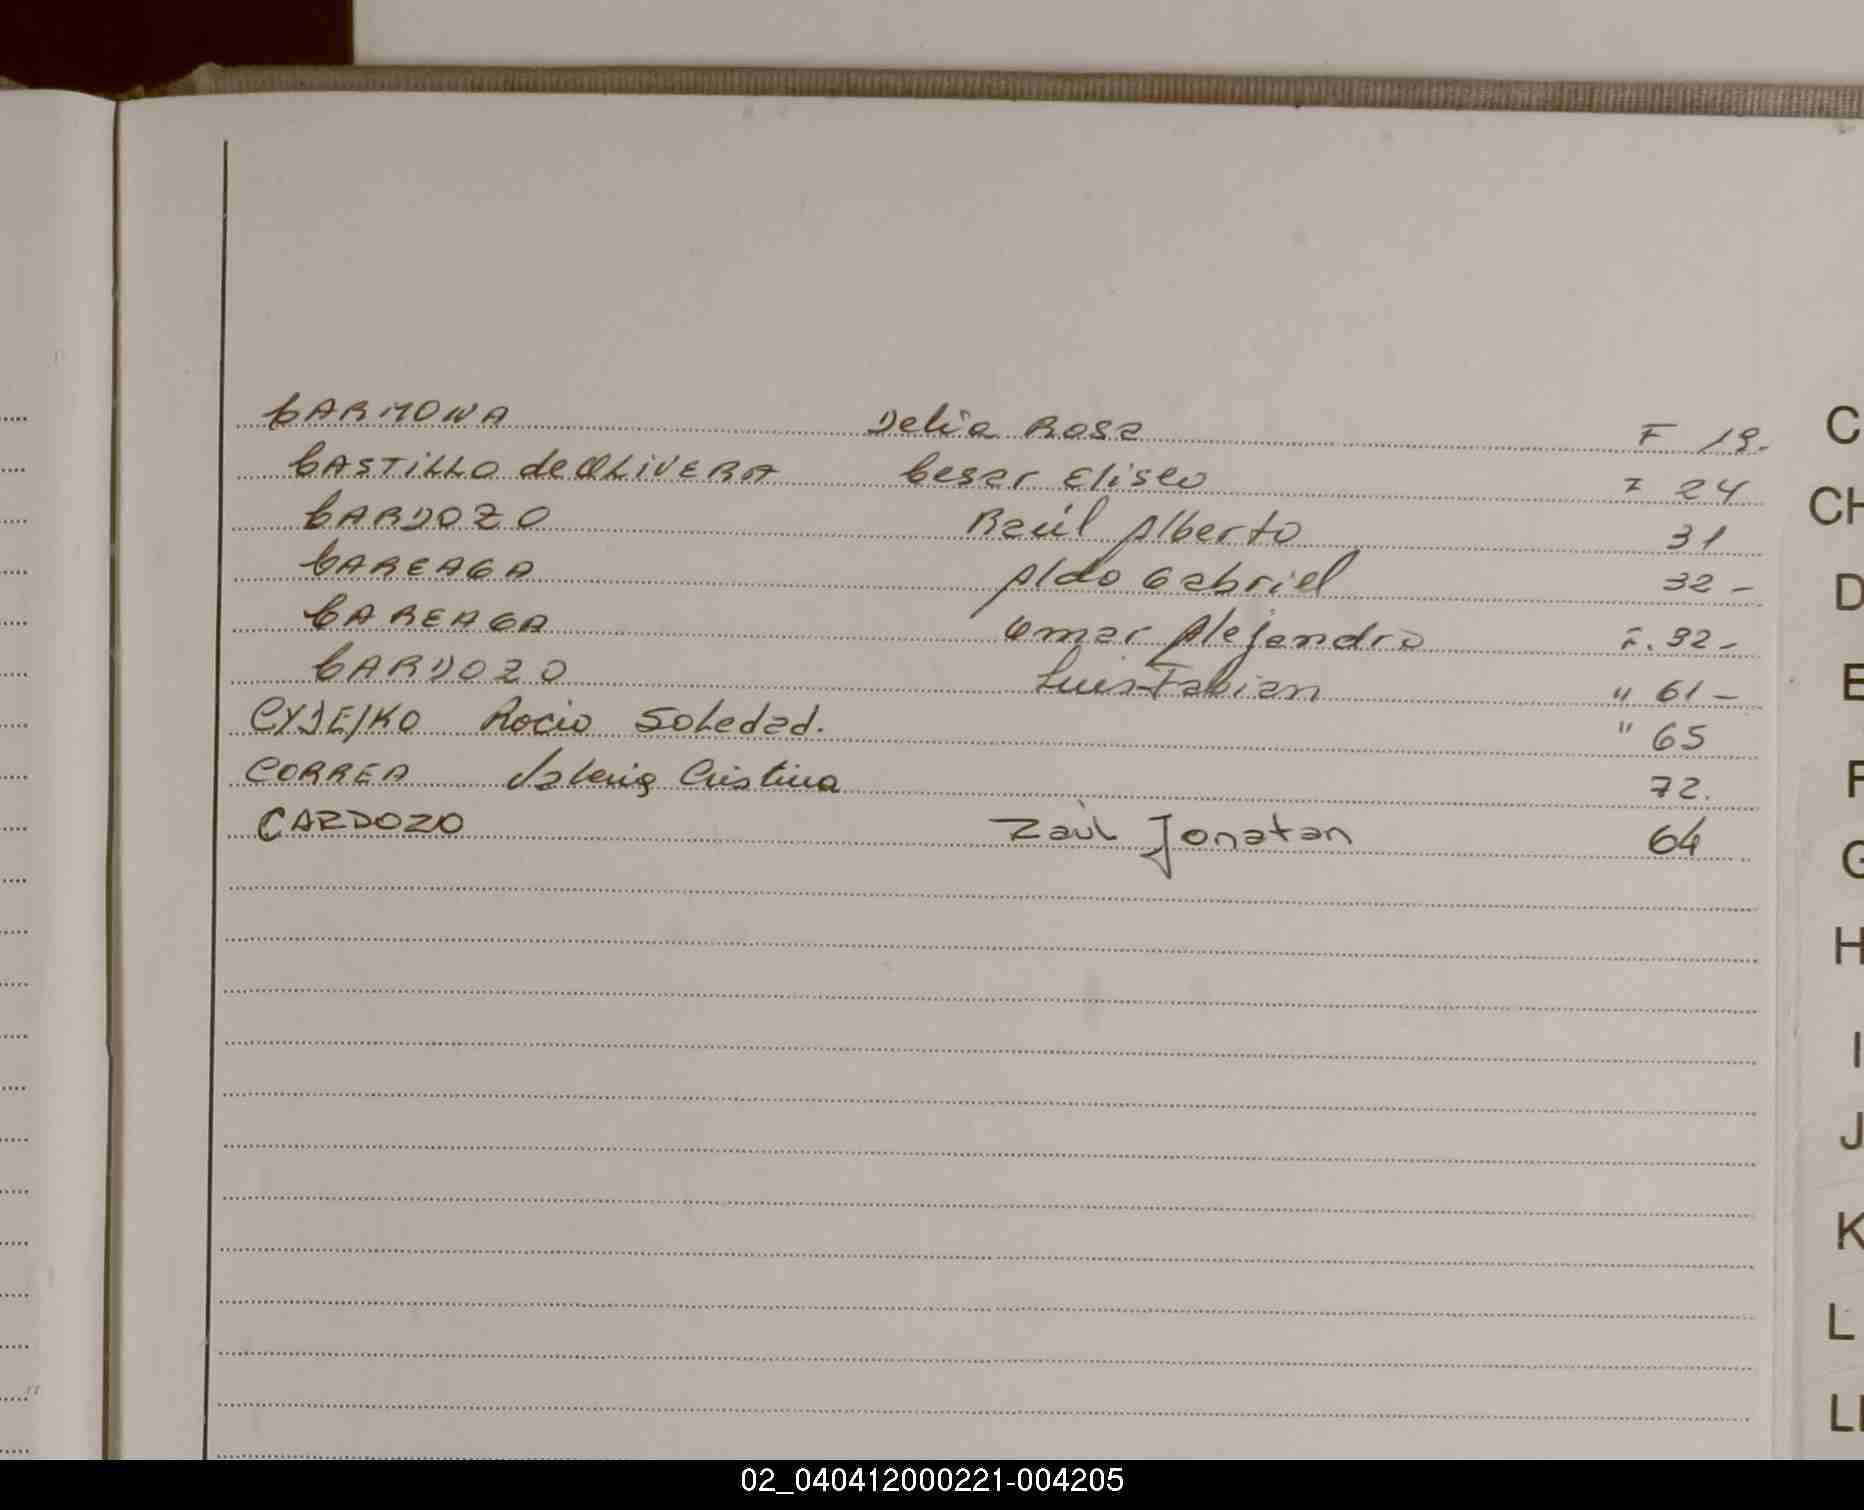 CARMONA Delia Rosa F 19.
CASTILLO de OLIVERA Cesar Eliseo F 24
CARDOZO Raúl Alberto 31
CAREAGA Aldo Gabriel 32 -
CAREAGA Omar Alejandro F. 32 -
CARDOZO Luis Fabian " 61 -
Rocio Soledad. " 65
CORREA Valeria Cristina 72.
CARDOZO Raúl Jonatan 64
C
CH
D
E
F
G
H
I
J
K
L
LL
02_040412000221-004205